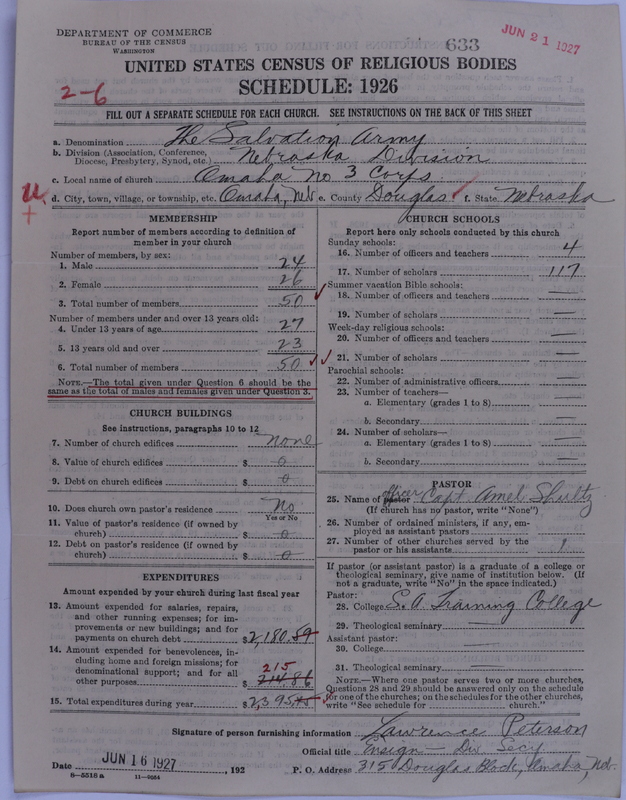 DEPARTMENT OF COMMERCE
BUREAU OF THE CENSUS
WASHINGTON
633
JUN 21 1927
UNITED STATES CENSUS OF RELIGIOUS BODIES
SCHEDULE: 1926
2-6
FILL OUT A SEPARATE SCHEDULE FOR EACH CHURCH. SEE INSTRUCTIONS ON THE BACK OF THIS SHEET
a. Denomination The Salvation Army
b. Division (Association, Conference, Diocese, Presbytery, Synod, etc.) Nebraska Division
c. Local name of church Omaha No 3 Corps.
d. City, town, village, or township, etc. Omaha, Neb e. County Douglas f. State Nebraska
U
+
MEMBERSHIP
Report number of members according to definition of
member in your church
Number of members, by sex:
1. Male 24
2. Female 26
3. Total number of members 50
Number of members under and over 13 years old:
4. Under 13 years of age 27
5. 13 years old and over 23
6. Total number of members 50
NOTE.—The total given under Question 6 should be the
same as the total of males and females given under Question 3.
CHURCH BUILDINGS
See instructions, paragraphs 10 to 12
7. Number of church edifices none
8. Value of church edifices $ 0
9. Debt on church edifices $ 0
10. Does church own pastor's residence No
Yes or No
11. Value of pastor's residence (if owned by
church) $ 0
12. Debt on pastor's residence (if owned by
church) $ 0
EXPENDITURES
Amount expended by your church during last fiscal year
13. Amount expended for salaries, repairs,
and other running expenses; for im-
provements or new buildings; and for
payments on church debt $2,180.59
14. Amount expended for benevolences, in-
cluding home and foreign missions; for
denominational support; and for all
215
other purposes $ 214 86
15. Total expenditures during year $2,395
CHURCH SCHOOLS
Report here only schools conducted by this church
Sunday schools:
16. Number of officers and teachers 4
17. Number of scholars 117
Summer vacation Bible schools:
18. Number of officers and teachers —
19. Number of scholars —
Week-day religious schools:
20. Number of officers and teachers —
21. Number of scholars —
Parochial schools:
22. Number of administrative officers —
23. Number of teachers—
a. Elementary (grades 1 to 8) —
b. Secondary —
24. Number of scholars—
a. Elementary (grades 1 to 8) —
b. Secondary —
PASTOR
officer
25. Name of pastor Capt Amel Shultz
(If church has no pastor, write "None")
26. Number of ordained ministers, if any, em-
ployed as assistant pastors —
27. Number of other churches served by the
pastor or his assistants 1
If pastor (or assistant pastor) is a graduate of a college or
theological seminary, give name of institution below. (If
not a graduate, write "No" in the space indicated.)
Pastor:
28. College S.A. Training College
29. Theological seminary —
Assistant pastor:
30. College —
31. Theological seminary —
NOTE.—Where one pastor serves two or more churches,
Questions 28 and 29 should be answered only on the schedule
for one of the churches; on the schedules for the other churches,
write "See schedule for church."
Signature of person furnishing information Lawrence Peterson
Official title Ensign - Div Secy
Date JUN 16 1927, 192 P. O. Address 315 Douglas Block, Omaha, Neb.
8-5518 a 11-9054